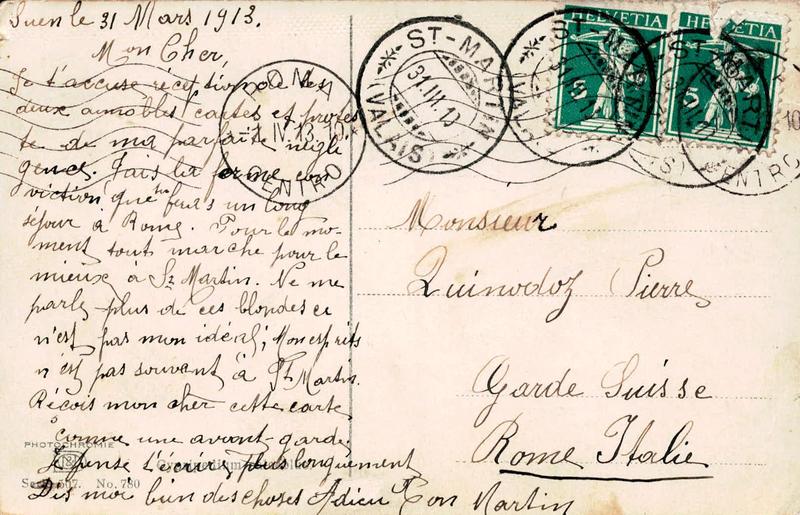 Suen le 31 Mars 1913.
Mon Cher,
Je t'accuse réception de tes
deux aimables cartes et protes
te de ma parfaite négli
gence. J'ais la ferme con
viction que tu feras un long
séjour à Rome. Pour le mo-
ment tout marche pour le
mieux à St Martin. Ne me
parle plus de ces blondes ce
n'est pas mon idéal; Mon esprits
n'est pas souvent à St Martin.
Reçois mon cher cette carte
comme une avant-garde
Je pense t'écrire plus longuement
Dis moi bien des choses Adieu Ton Martin
Monsieur
Quinodoz Pierre
Garde Suisse
Rome Italie
HELVETIA
5
HELVETIA
5
ST-MARTIN
(VALAIS)
31.III.13
ROMA
-1.IV.13.10
CENTRO
PHOTOCHROMIE
Serie 507. No. 780